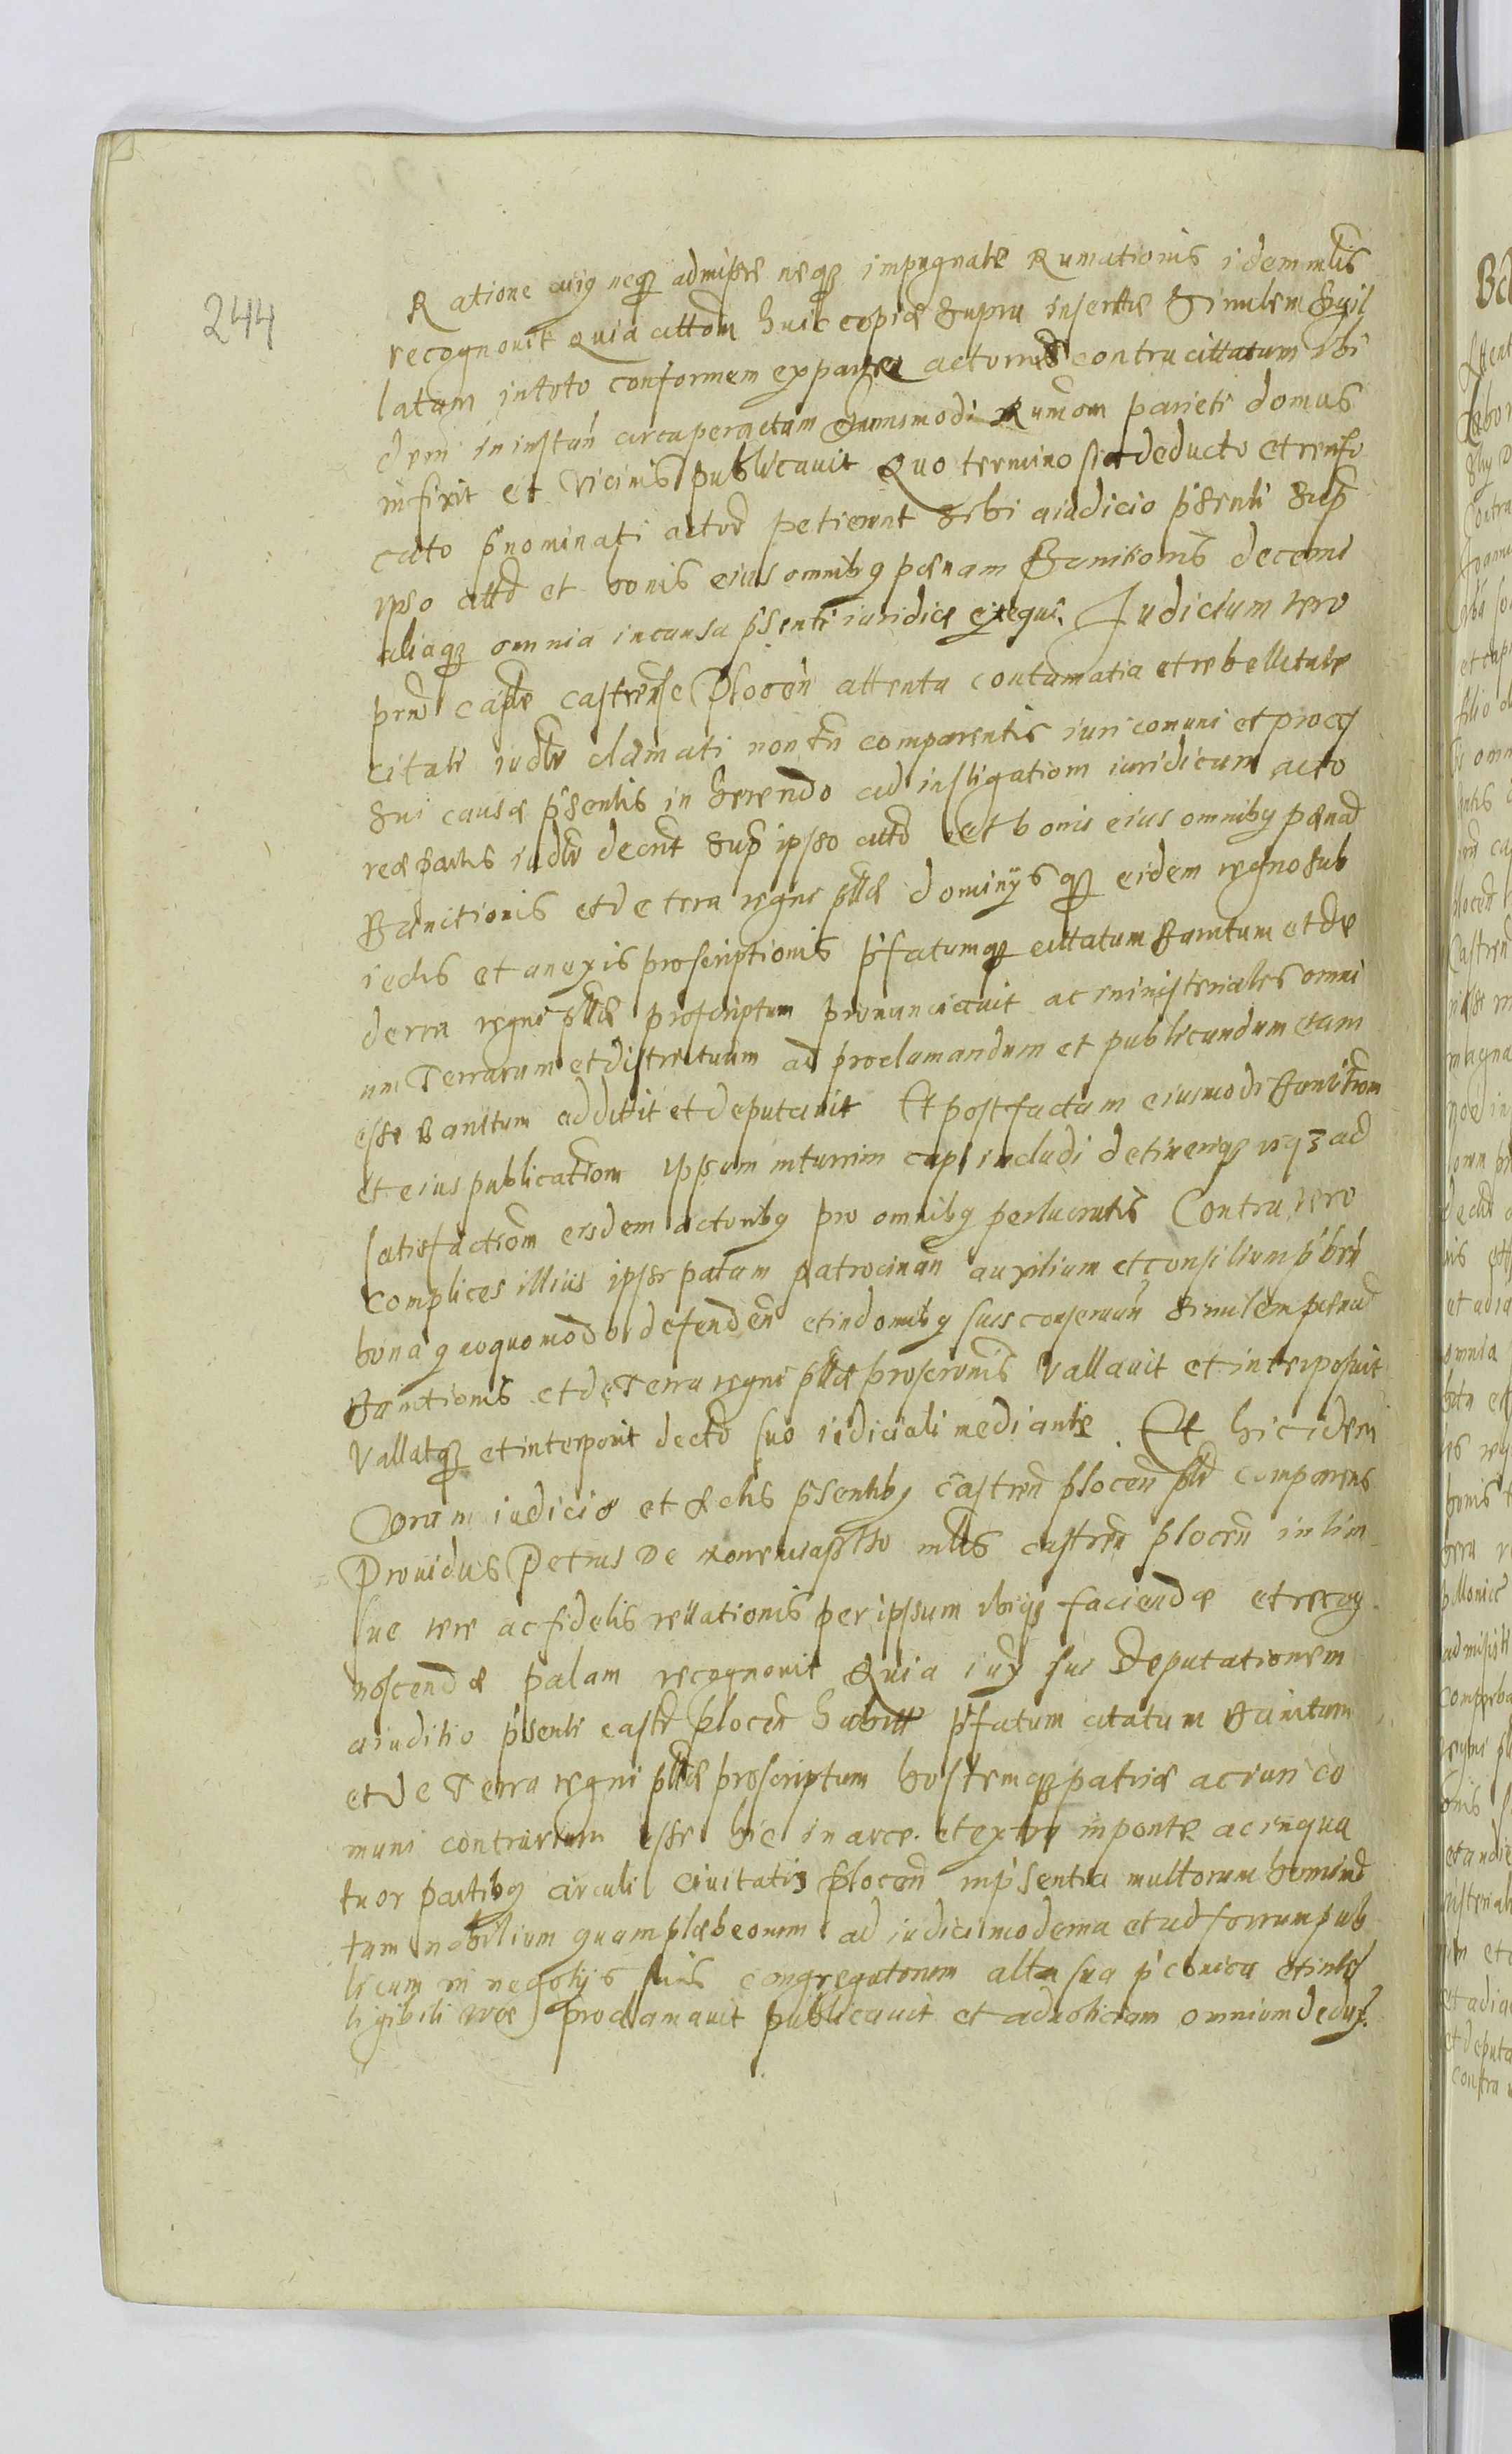 244
Ratione cuiq neqz admissae neqz impugnatae Rumationis idem mlis
recognouit Quia cittaõm huic copiae supra insertae similem Sigil
latam in toto conformem ex parte actorum contra cittatum ibi
dem in instan circa peractam huiusmodi Rumõm parieti domus
infixit et vicinis publicauit Quo termino sic deducto et verifi
cato p̃nominati actor petierunt sibi a iudicio p̃senti sup
ipso citto et bonis eius omnibq paenam Banitionis decerni
aliaqz omnia in causa p̃senti iuridice exequi. Judicium vero
prns capte castrense Plocen attenta contumatia et rebellitate
citati iudlr clamati non tñ comparentis iuri comuni et procs
sui causae p̃sentis in herendo ad instigationem iuridicam acto
reae partis iudlr decrit sup ipso citto et bonis eius omnibq paenã
Banitionis et de terra regni pllae dominijsqz eidem regno sub
iectis et anexis proscriptionis p̃fatumqz cittatum Banitum et de
terra regni pllae proscriptum pronunciauit ac ministeriales omni
um Terrarum et districtuum ad proclamandum et publicandum eum
esse Banitum addidit et deputauit Et post factam eiusmodi Banitiom
et eius publicatiom ipsum in turrim capi includi detineriqz vsqz ad
satisfactiom eisdem actoribq pro omnibq perlucratis Contra vero
complices illius ipsi patam patrocinan auxilium et consilium p̃ben
bonaq eo quomodo defenden et in domibq suis conseruan similem paenã
Banitionis et de Terra regni pllae proscronis Vallauit et interposuit
Vallatqz et interponit decto suo iudiciali mediante. Et hic idem
Coram iudicio et actis p̃sentibq castren plocen plr comparens
Prouidus Petrus De mlis castren plocen in vim
sue vere ac fidelis rellationis per ipsum ibiqz faciendae et recog
noscendae palam recognouit Quia iuxᵃ sui Deputationem
a iuditio p̃senti castr plocen habitt p̃fatum citatum Banitum
et de Terra regni pllae proscriptum hostemqz patriae ac iuri co
muni contrarium esse hic in arce et extra in ponte ac in qua
tuor partibq circuli ciuitatis plocen in p̃sentia multorum hominũ
tam nobilium quam plaebeorum ad iudicia moderna et ad forrum pub
licum in negotijs suis congregatorum alta sua p̃conica et intel
ligibili voce proclamauit publicauit et ad noticiam omnium dedux.